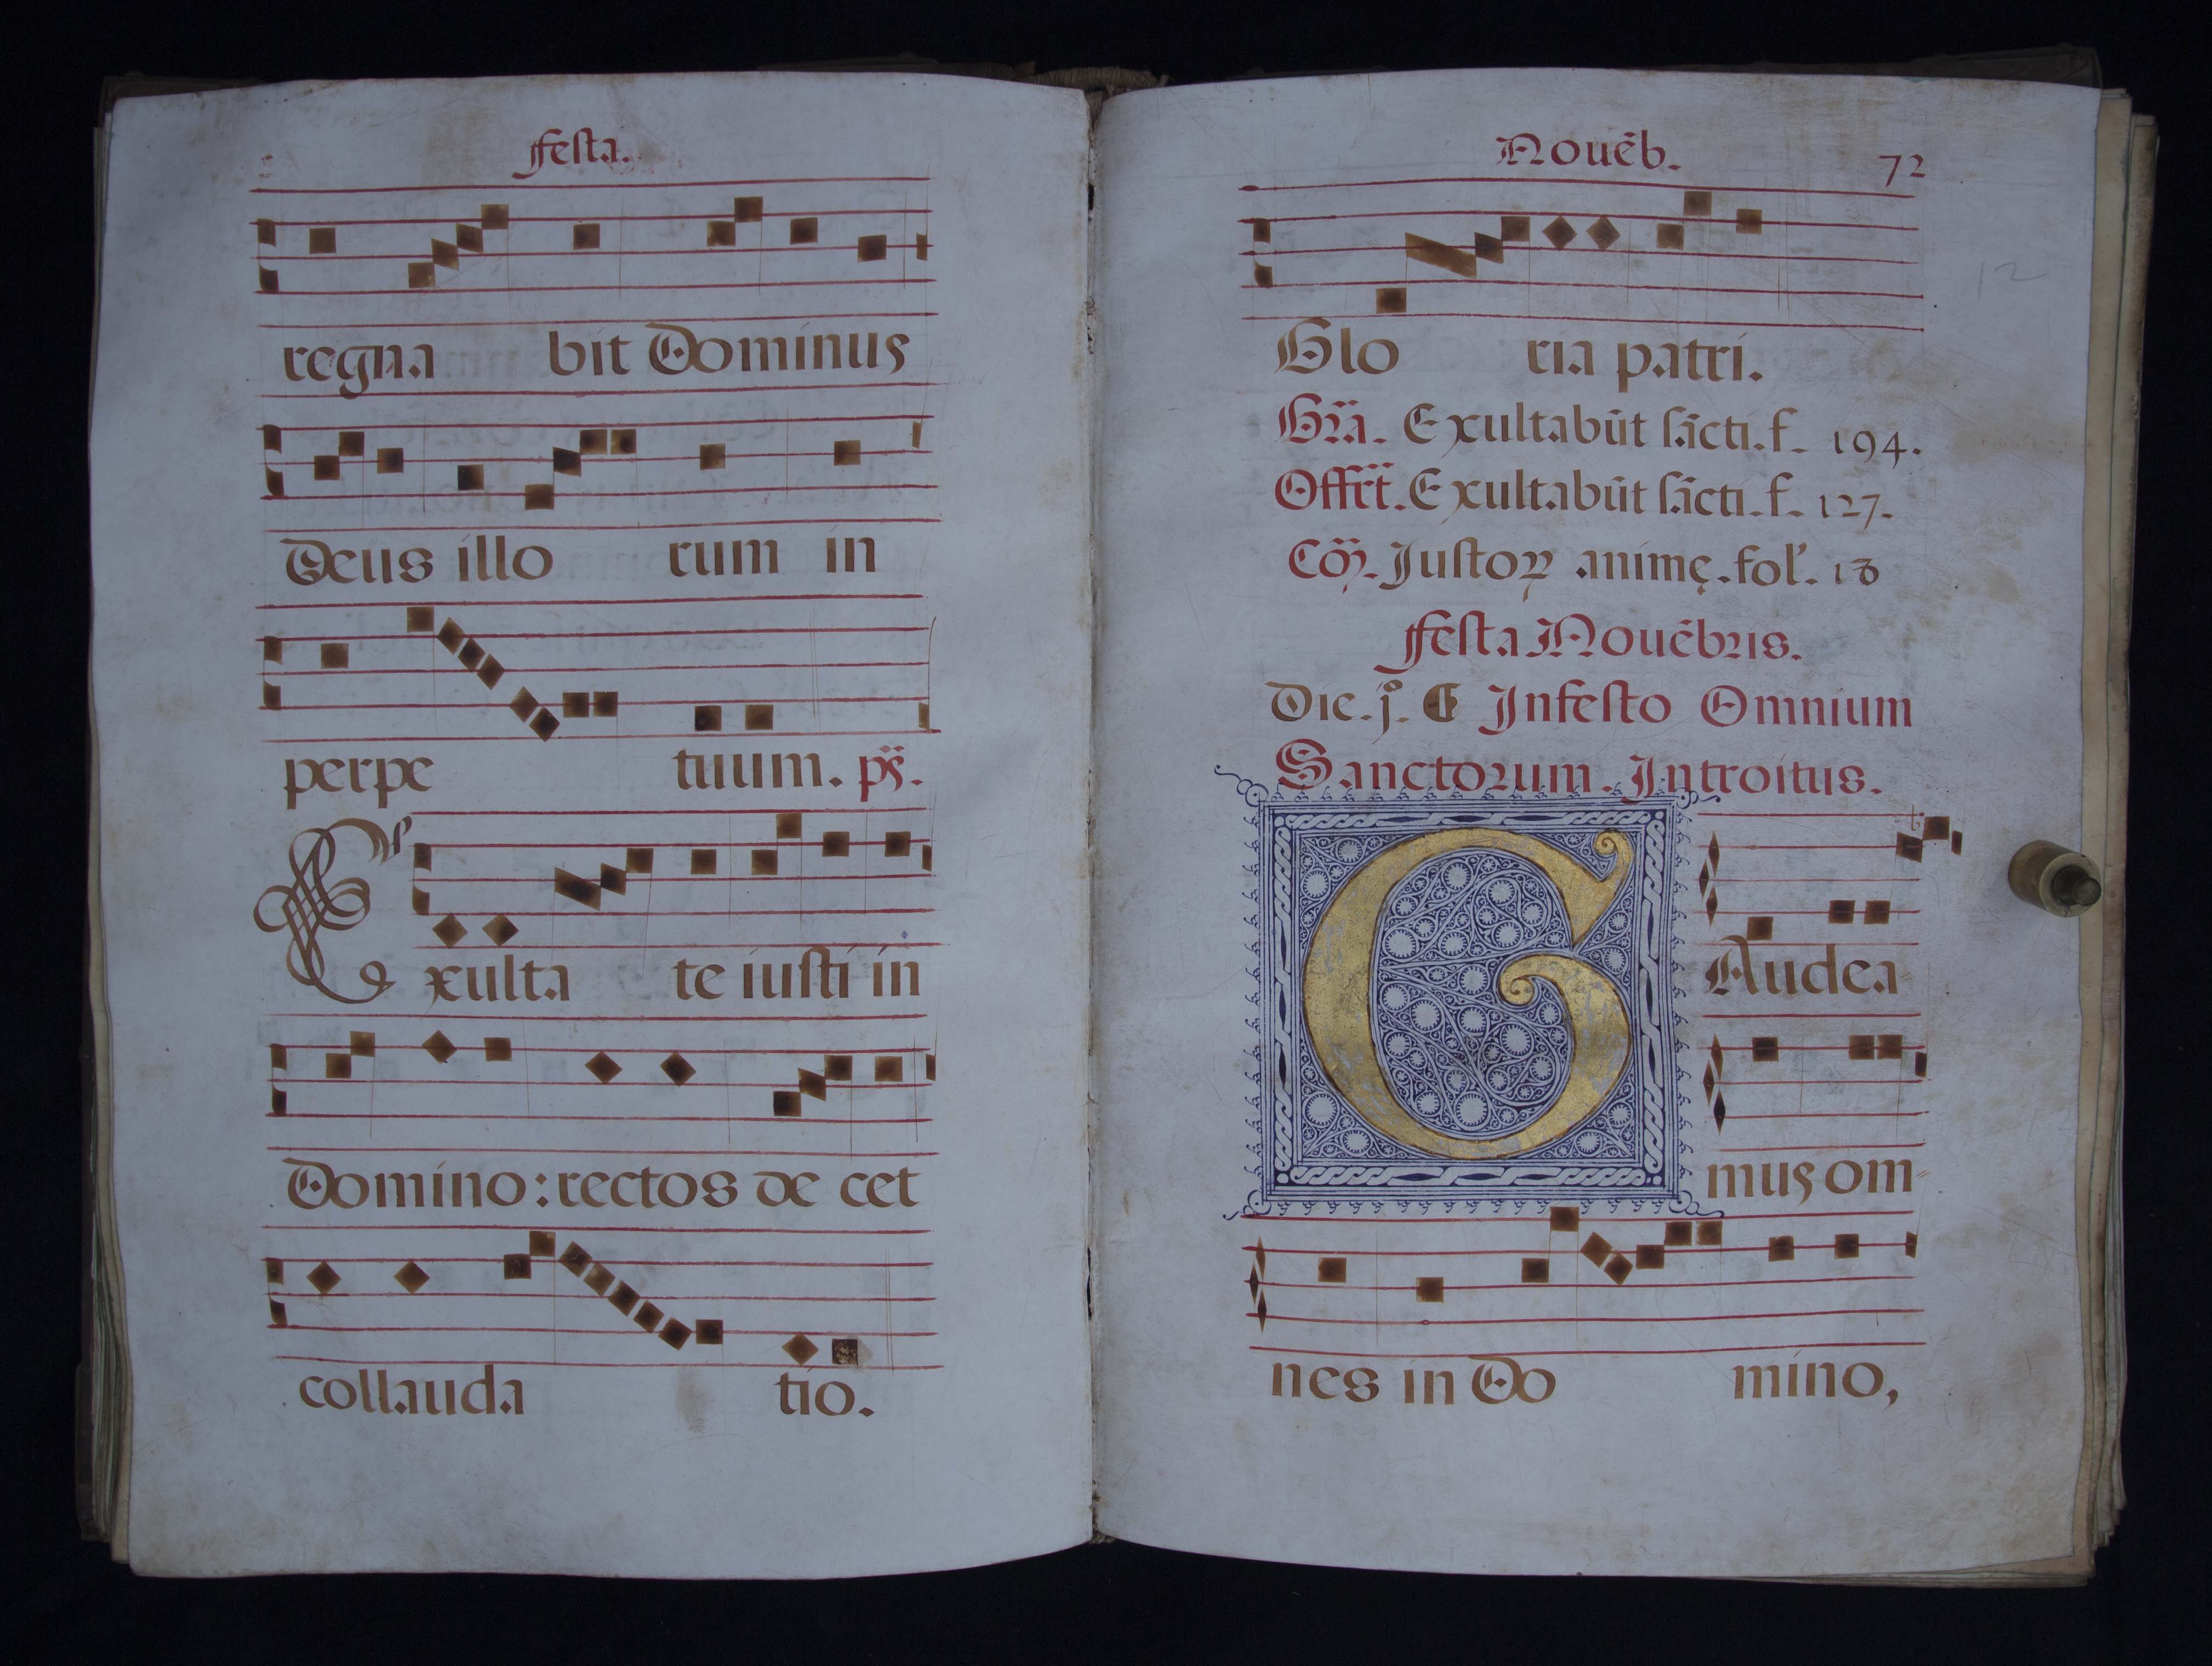 festa.
regna bit Dominus
Deus illo rum in
perpe tuum. ps̈.
Exulta te iusti in
Domino: rectos de cet
collauda tio.
Nouēb. 72
12
Glo ria patri.
Gr̄a. Exultabūt sācti. f. 194.
Offrt̄. Exultabūt sācti. f. 127.
Cōꝫ. Justoꝝ animę. fol'. 18
festa Nouēbris.
Die. j. ¶ Infesto Omnium
Sanctorum. Introitus.
GAudea-
mus om-
nes in Do mino,